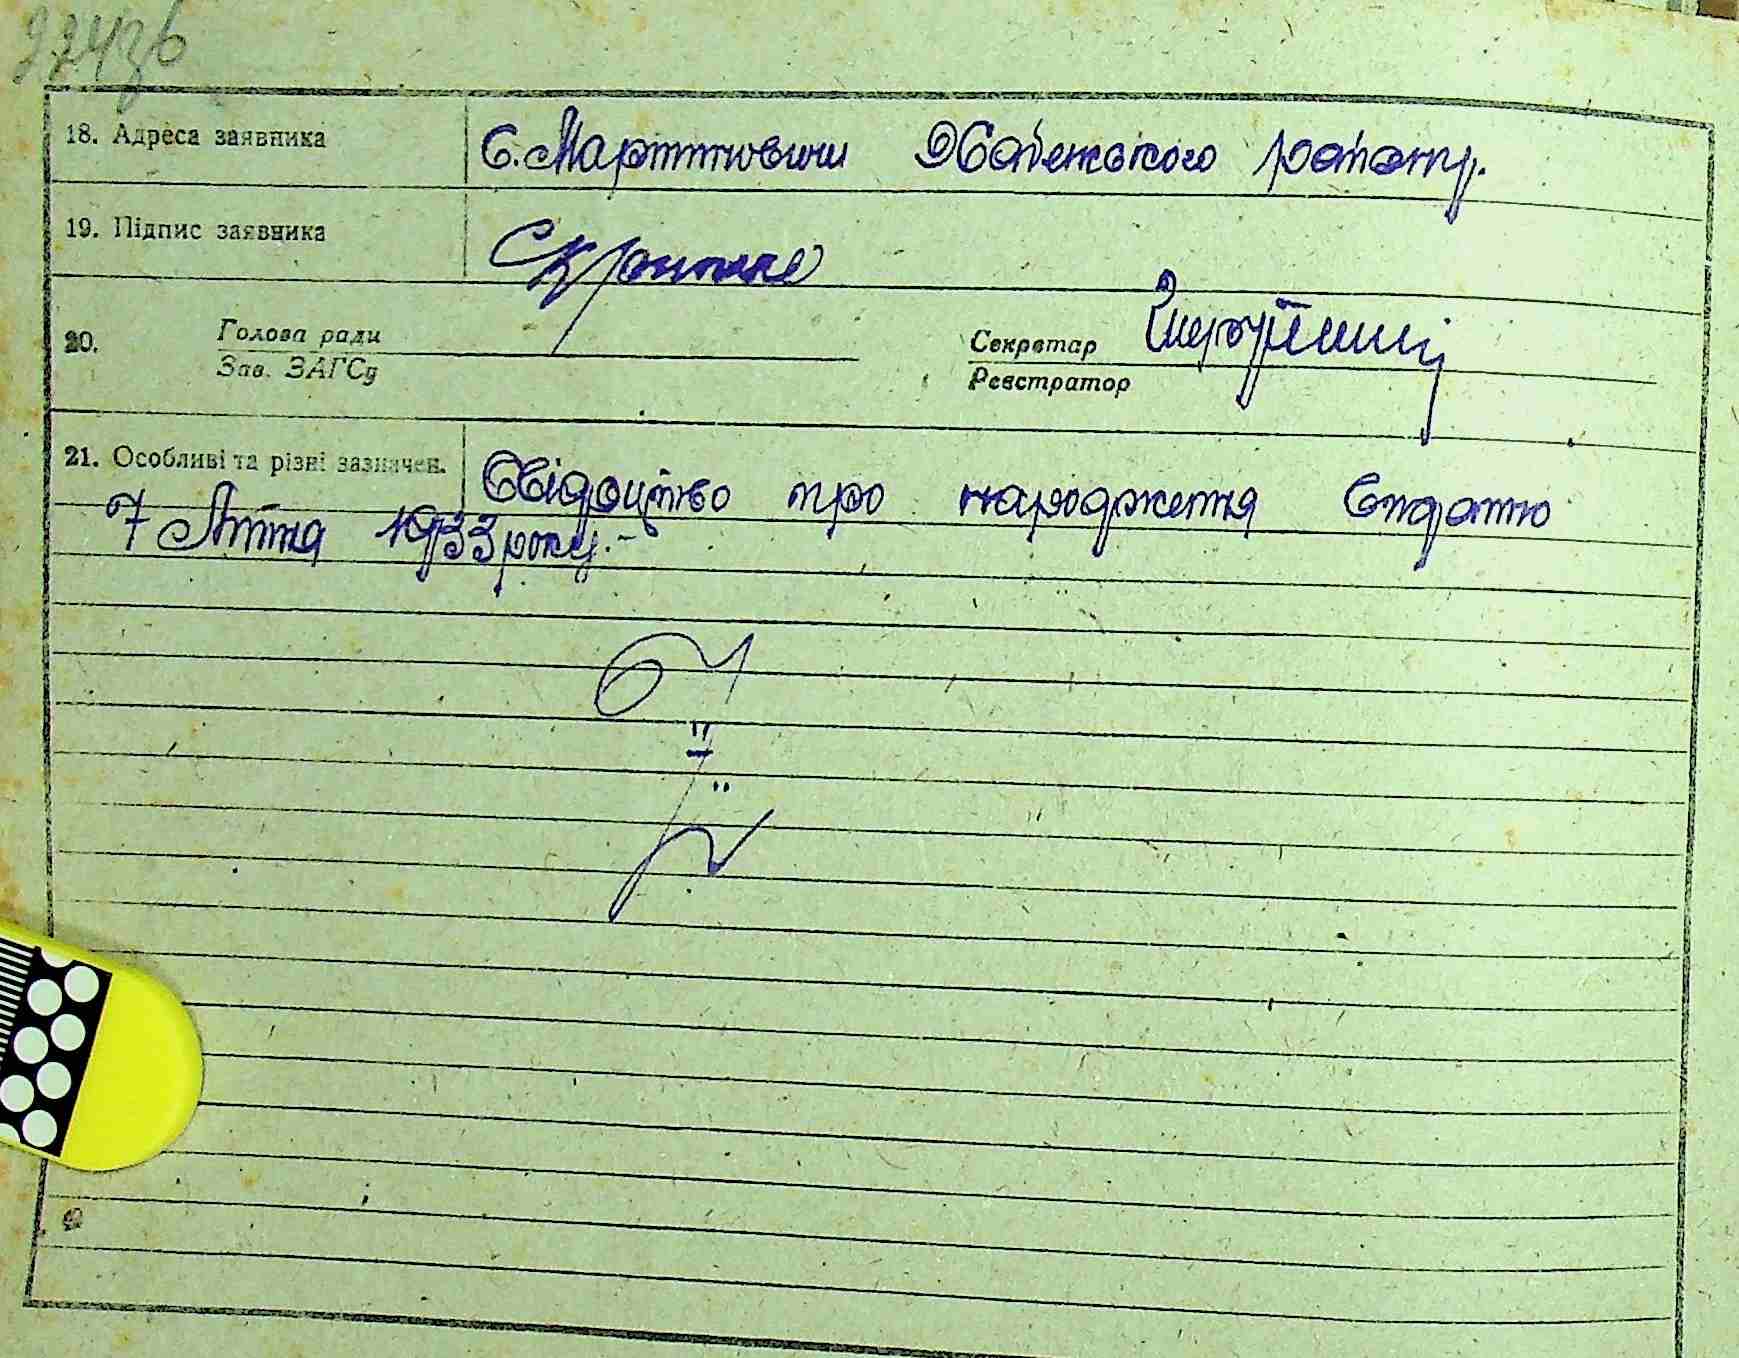 18. Адреса заявника С. Мартиновичи Хабенського району.
19. Підпис заявника
20. Голова ради Секретар
Зав. ЗАГСу Реєстратор
21. Особливі та різні зазначен. Свідоцтво про народження видано
7 Липня 1933 року.-